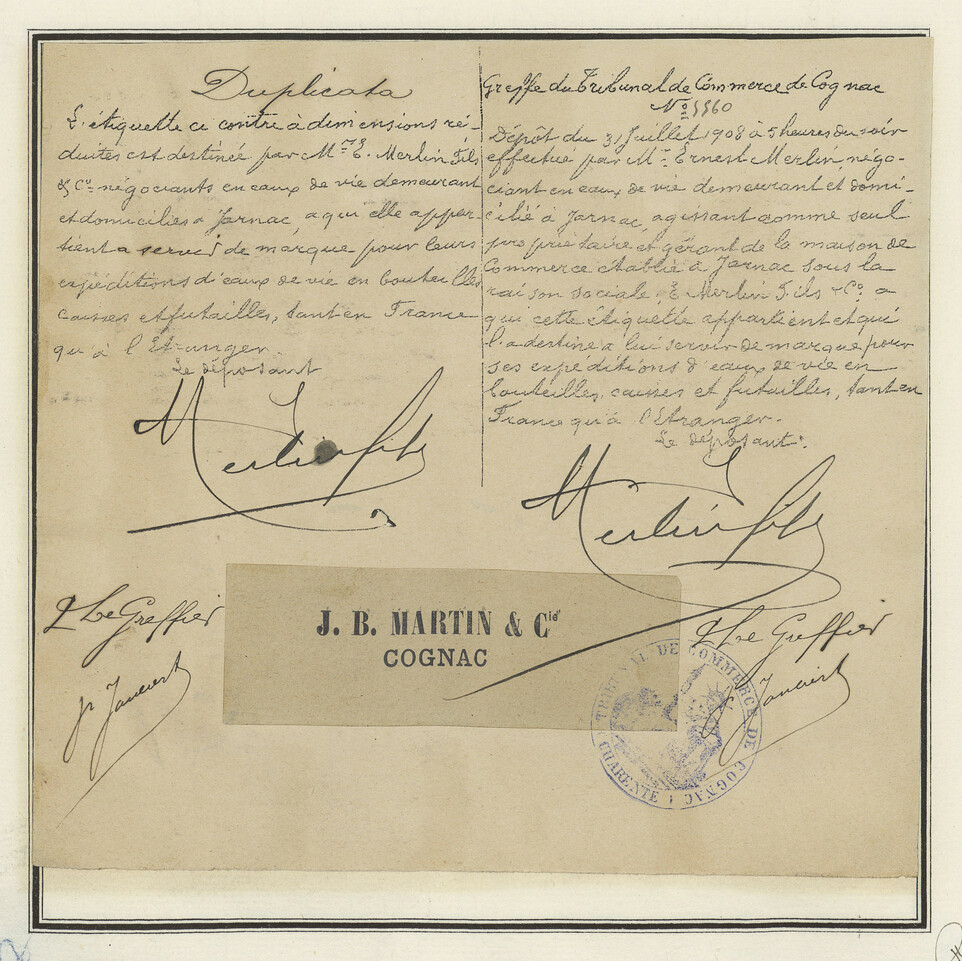 Duplicata
L'étiquette ci contre à dimensions ré-
duites est destinée par Mrs E. Merlin Fils
& Co. négociants en eaux de vie demeurant
et domiciliés à Jarnac, a qui elle appar-
tient a servir de marque pour leurs
expéditions d'eaux de vie en bouteilles
caisses et futailles, tant en France
qu'à l'Etranger.
Le déposant
Merlin fils
Le Greffier
Greffe du Tribunal de Commerce de Cognac
No 5560
Dépôt du 31 Juillet 1908 à 5 heures du soir
effectué par Mr Ernest Merlin, négo-
ciant en eaux de vie demeurant et domi-
cilié à Jarnac, agissant comme seul
propriétaire et gérant de la maison de
Commerce établie à Jarnac sous la
raison sociale, E. Merlin Fils & Co. a
qui cette étiquette appartient et qui
l'a destine a lui servir de marque pour
ses expéditions d'eaux de vie en
bouteilles, caisses et futailles, tant en
France qu'à l'étranger.
Le déposant:
Merlin fils
Le Greffier
J. B. MARTIN & Cie
COGNAC
TRIBUNAL DE COMMERCE DE COGNAC
CHARENTE